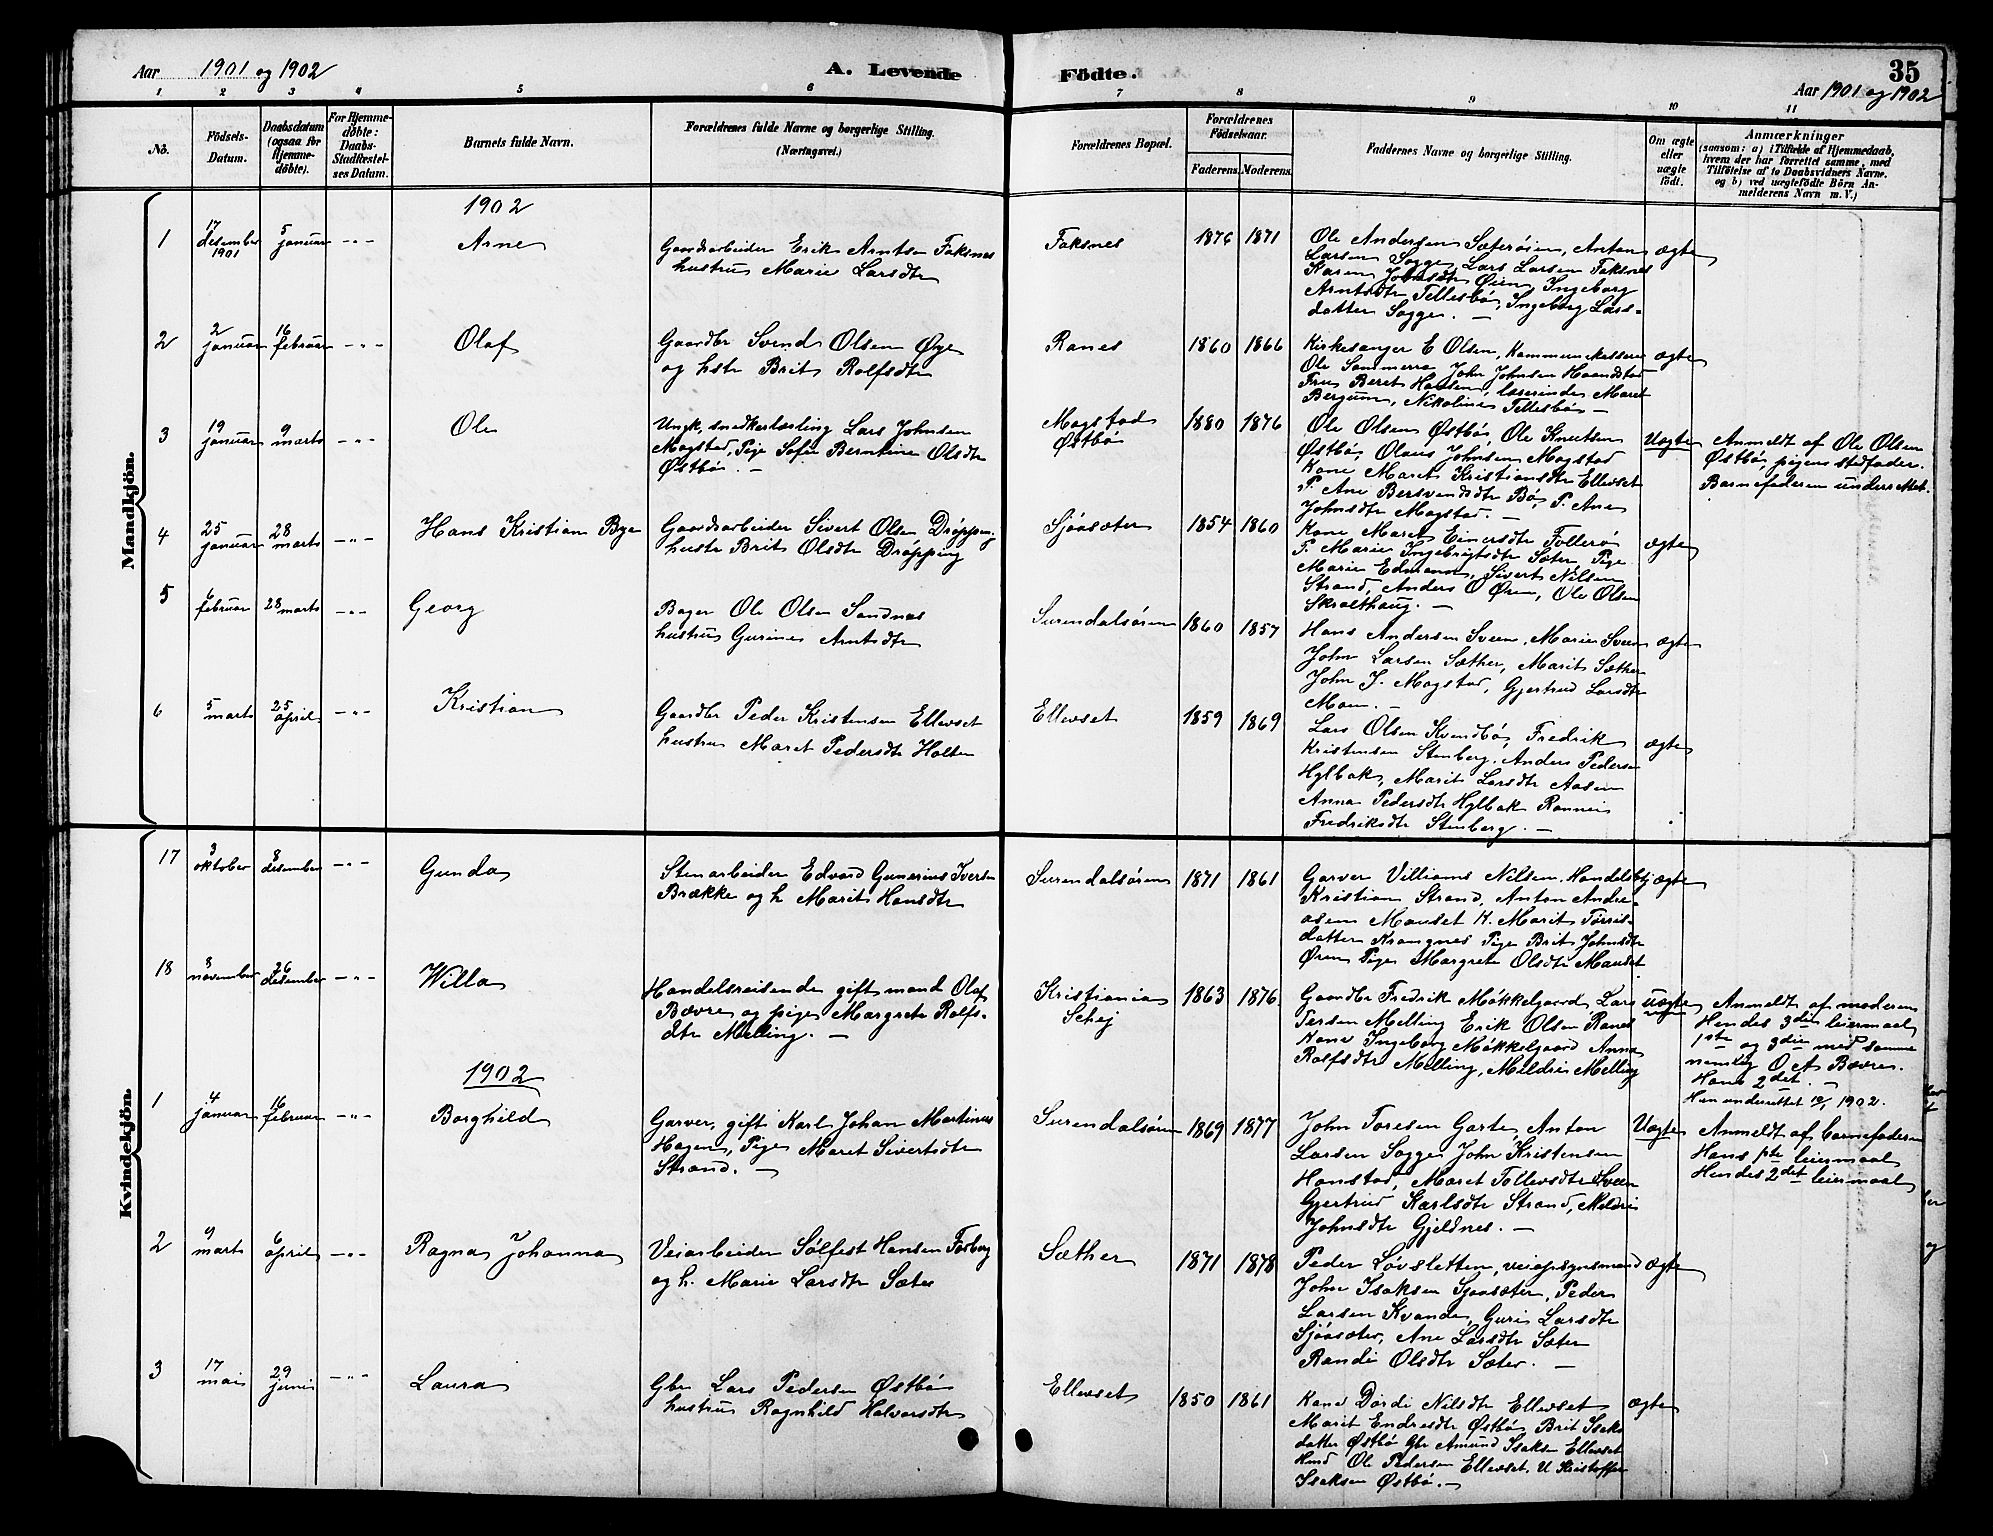 Aar 1901 og 1902
A. Levende
Födte.
35
Aar 1901 og 1902
1 2 3 4 5 6 7 8 9 10 11
No.
Födsels-
Datum.
Daabsdatum
(ogsaa for
Hjemme-
döbte).
For Hjemme-
döbte:
Daabs-
Stadfæstel-
ses Datum.
Barnets fulde Navn.
Forældrenes fulde Navne og borgerlige Stilling.
(Næringsvei.)
Forældrenes Bopæl.
Forældrenes
Födselsaar.
Faderens.
Moderens.
Faddernes Navne og borgerlige Stilling.
Om ægte
eller
uægte
födt.
Anmærkninger
(saasom: a) i Tilfælde af Hjemmedaab,
hvem der har forrettet samme, med
Tilföielse af to Daabsvidners Navne.
og b) ved uægtefödte Börn An-
melderens Navn m. V.)
Mandkjön.
1902
1
17
desember
1901
5
januar
-"-
Arne
Gaardsarbeider Erik Arntsen Faksnes
hustru Marie Larsdtr
Faksnes
1876
1871
Ole Andersen Sæterøien, Anton
Larsen Sogge, Lars Larsen Faksnes
Karen Johnsdtr Øien, Ingeborg
Arntsdtr Tellesbø, Ingeborg Lars-
datter Sogge. —
ægte
2
2
januar
16
februar
-"-
Olaf
Gaardbr Svend Olsen Øye
og hstr Brit Rolfsdtr
Ranes
1860
1866
Kirkesanger E Olsen, Kommunekasserer
Ole Sommerro John Johnsen Haandstad
Fru Beret Hansen, læserinde Maret
Bergum, Nikoline Tellesbø —
ægte
3
19
januar
9
marts
-"-
Ole
Ungk, snedkerlærling Lars Johnsen
Mogstad, Pige Sofie Berntine Olsdtr
Østbø. —
Mogstad
Østbø
1880
1876
Ole Olsen Østbø, Ole Knutsen
Østbø, Olaus Johnsen Mogstad
Kone Maret Kristiansdtr Ellevset
P. Ane Bersvendsdtr Bø, P. Ane
Johnsdtr Mogstad. —
Uægte
Anmeldt af Ole Olsen
Østbø, pigens stedfader.
Barnefaderen underrettet.
4
25
januar
28
marts
-"-
Hans Kristian Bye
Gaardsarbeider Sivert Olsen Drøpping
hustr Brit Olsdtr Drøpping
Sjøasæter
1854
1860
Kone Maret Einersdtr Follerø
P. Marie Ingebrigtsdtr Sæter, Pige
Marie Edmann, Sivert Nilsen
Strand, Anders O Øren, Ole Olsen
Skralthaug. —
ægte
5
6
februar
28 marts
-"-
Georg
Bager Ole Olsen Sandnæs
hustru Gurine Arntsdtr
Surendalsøren
1860
1857
Hans Andersen Sveen, Marie Sveen
John Larsen Sæther, Marit Sæther
John J. Mogstad, Gjertrud Larsdtr
Moen. —
ægte
6
5
marts
25
april
-"-
Kristian
Gaardbr Peder Kristensen Ellevset
hustru Maret Pedersdtr Holten
Ellevset
1859
1869
Lars Olsen Kvendbø, Fredrik
Kristensen Stenberg, Anders Pedersen
Hylbak, Marit Larsdtr Aasen
Anna Pedersdtr Hylbak Rønnei
Fredriksdtr Stenberg. —
ægte
Kvindekjön.
17
3
oktober
8
desember
-"-
Gunda
Stenarbeider Edvard Gunerius Iversen
Brække og h Marit Hansdtr
Surendalsøren
1871
1861
Garver Villiams Nilsen, Handelsbtj
Kristian Strand, Anton Andre-
asen Mauset K. Marit Tørris-
datter Krangnes Pige Brit Johnsdtr
Øren Pige Margrete Olsdtr Mauset
ægte
18
8
november
26
desember
-"-
Willa
Handelsreisende gift mand Olaf
Bævre og pige Margrete Rolfs-
dtr Melling. —
Kristiania
Schej
1863
1876
Gaardbr Fredrik Møkkelgaard, Lars
Tørsen Melling Erik Olsen Ranes
Kone Ingeborg Møkkelgaard Anna
Rolfsdtr Melling, Mildrei Melling
uægte
Anmeldt af moderen
Hendes 3die leiermaal
1ste og 3die med samme
nemlig O A Bævre.
Hans 2det. —
Han underrettet 1902.
1902
1
4
januar
16
februar
-"-
Borghild
Garver, gift Karl Johan Martinus
Hagen, Pige Maret Sivertsdtr
Strand. —
Surendalsøren
1869
1877
John Toresen Garte, Anton
Larsen Sogge, John Kristensen
Hanstad, Maret Tollevsdtr Sveen
Gjertrud Karlsdtr Strand, Mildrei
Johnsdtr Gjeldnes. —
Uægte
Anmeldt af barnefaderen
Hans 1ste leiermaal
Hendes 2det leiermaal
2
9
marts
6
april
-"-
Ragna Johanna
Veiarbeider Sølfest Hansen Forborg
og h. Marie Larsdtr Sæter
Sæther
1871
1878
Peder Løvsletten, veiopsynsmand
John Isaksen Sjøasæter, Peder
Larsen Kvande, Guri Larsdtr
Sjøasæter, Ane Larsdtr Sæter
Randi Olsdtr Sæter. —
ægte
3
17
mai
29
juni
-"-
Laura
Gbr Lars Pedersen Østbø
hustru Ragnhild Halvorsdtr
Ellevset
1850
1861
Kone Dordi Nilsdtr Ellevset
Marit Endresdtr Østbø, Brit Isaks-
datter Østbø Gbr Amund Isaksen Ellevset
Ole Pedersen Ellevset. U Kristoffer
Isaksen Østbø. —
ægte